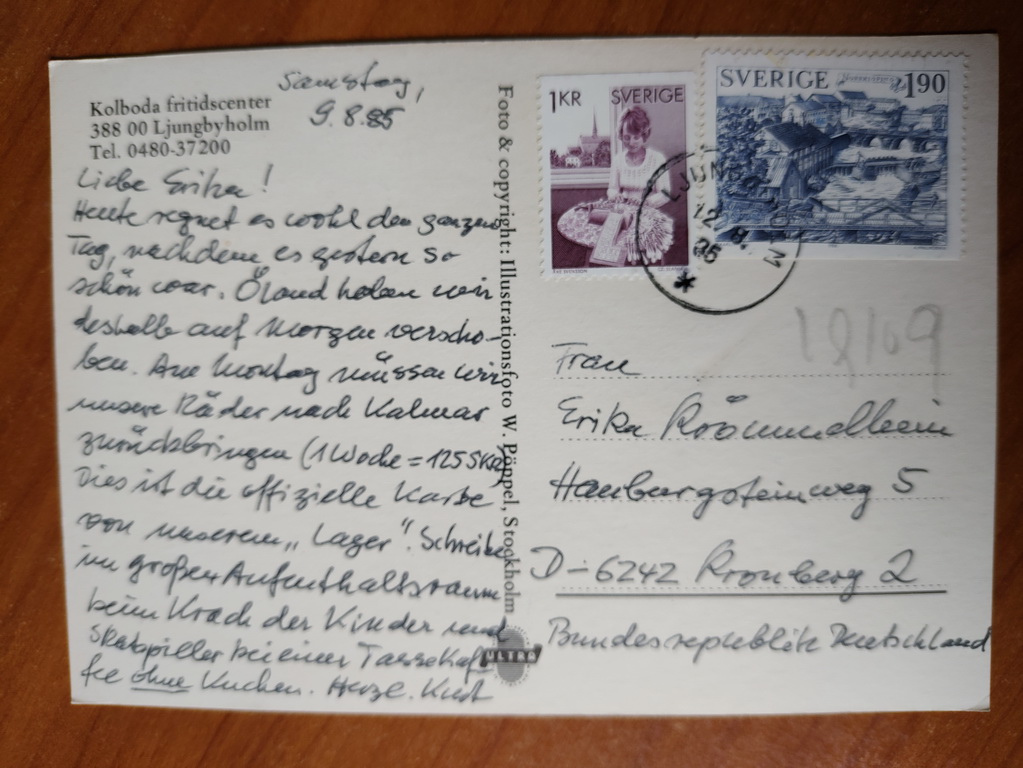 Kolboda fritidscenter
388 00 Ljungbyholm
Tel. 0480-37200
Samstag,
9.8.85
Liebe Erika!
Heute regnet es wohl den ganzen
Tag, nachdem es gestern so
schön war. Öland haben wir
deshalb auf Morgen verscho-
ben. Am Montag müssen wir
unsere Räder nach Kalmar
zurückbringen (1 Woche = 125 SKR)
Dies ist die offizielle Karte
von unserem „Lager". Schreibe
im großen Aufenthaltsraum
beim Krach der Kinder und
Skatspieler bei einer Tasse Kaf-
fee ohne Kuchen. Herzl. Kurt
Foto & copyright: Illustrationsfoto W. Pöppel, Stockholm
ULTRA
1KR SVERIGE
SVERIGE 1.90
LJUNGBYHOLM
12.8.
85
19/09
Frau
Erika
Hainburgsteinweg 5
D-6242 Kronberg 2
Bundesrepublik Deutschland